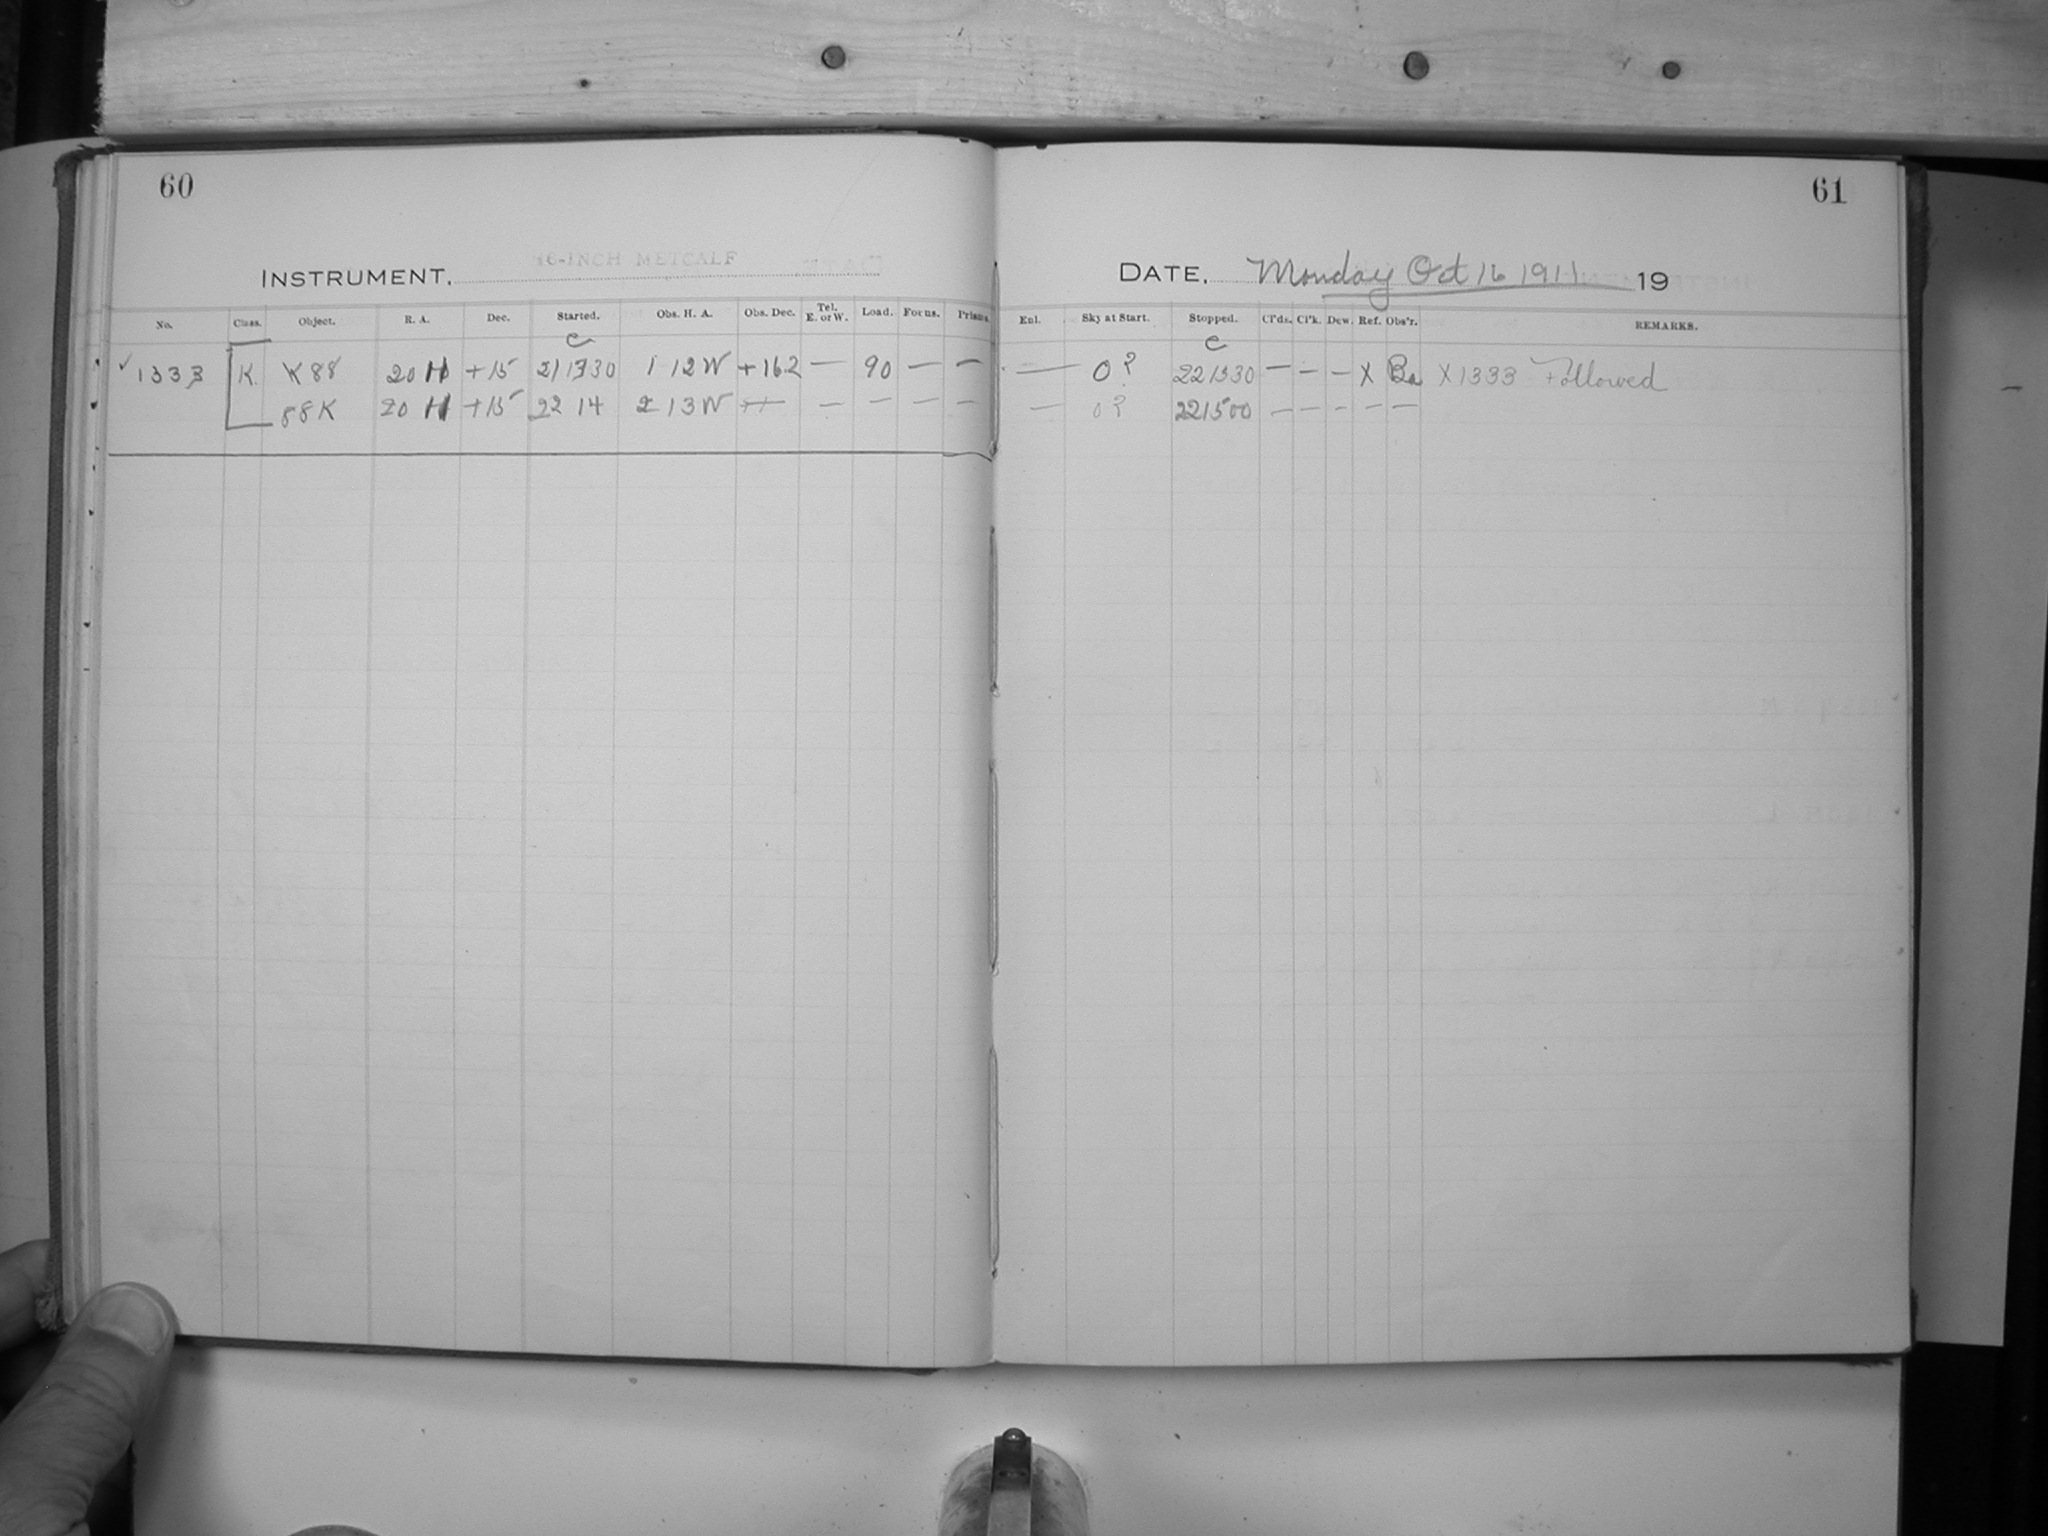 60
INSTRUMENT. 16-INCH METCALF
No. Class. Object. R. A. Dec. Started. Obs. H. A. Obs. Dec. Tel. E. or W. Load. Focus. Prisms.
C
✓ 1333 K K 88 20 H +15 211330 1 12 W +16.2 — 90 — —
88 K 20 H +15 22 14 2 13 W — — — — —
61
DATE. Monday Oct 16 1911 19
Enl. Sky at Start. Stopped. Cl'ds. Cl'k. Dew. Ref. Obs'r. REMARKS.
C
— 0? 221330 — — — X Ba X 1333 Followed
— 0? 221500 — — — — —